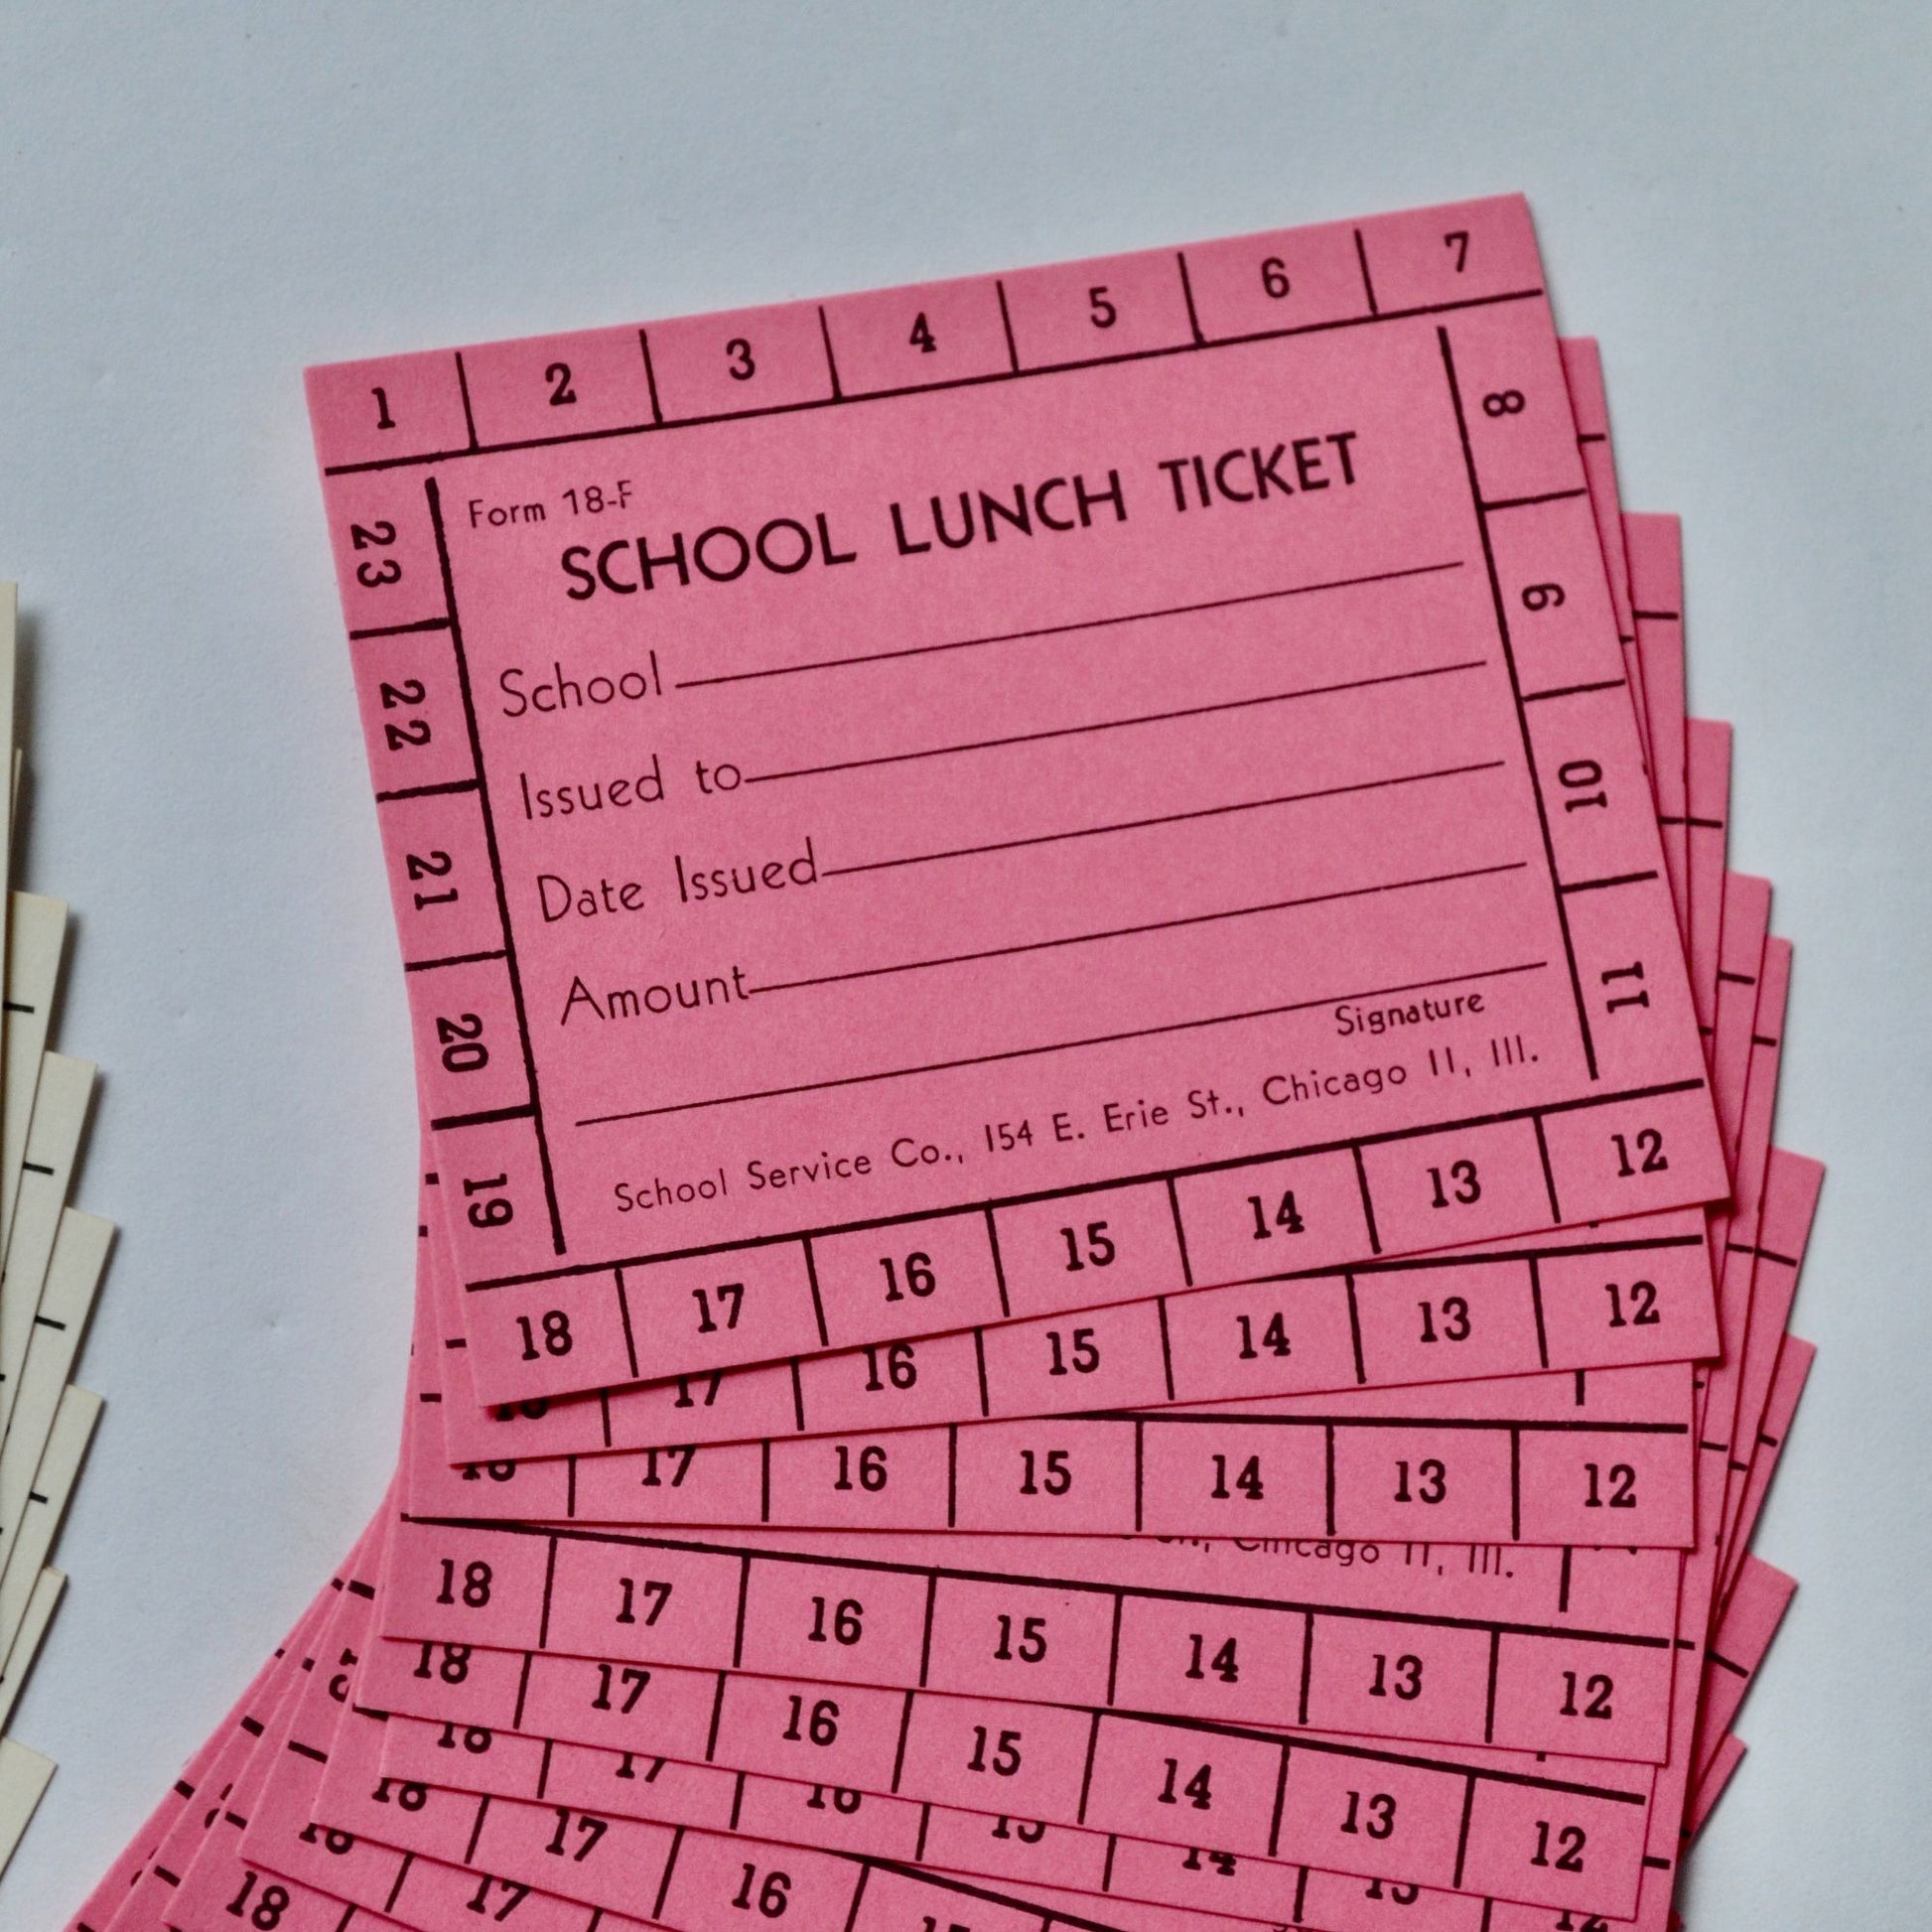 1 2 3 4 5 6 7
8
9
10
11
23
22
21
20
19
Form 18-F
SCHOOL LUNCH TICKET
School
Issued to
Date Issued
Amount
Signature
School Service Co., 154 E. Erie St., Chicago 11, Ill.
18 17 16 15 14 13 12
18 17 16 15 14 13 12
18 17 16 15 14 13 12
Chicago 11, Ill.
18 17 16 15 14 13 12
18 17 16 15 14 13 12
18 17 16 15 14 13 12
18 17 16
18 17
18